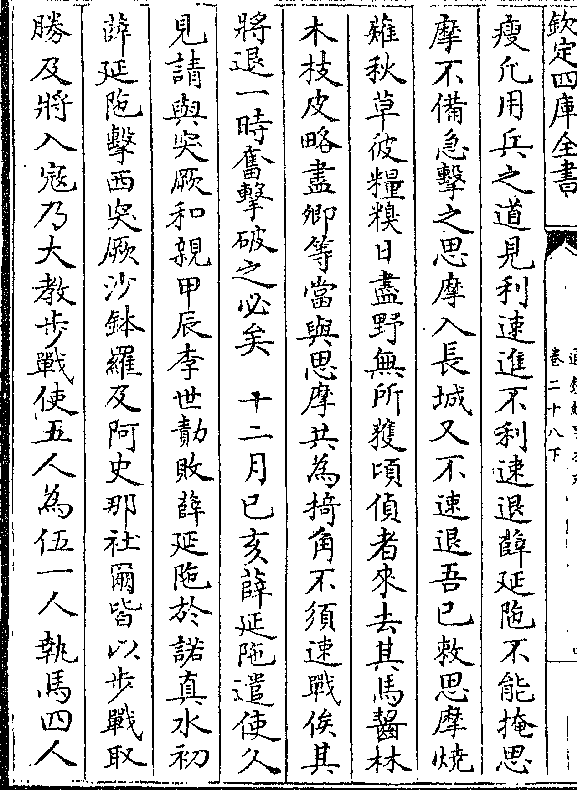 欽定四庫全書
卷二十八下
瘦凡用兵之道見利速進不利速退薛延陁不能掩思
摩不備急擊之思摩入長城又不速退吾已敕思摩燒
薙秋草彼糧糗日盡野無所獲頃偵者來去其馬齧林
木枝皮略盡卿等當與思摩共為掎角不須速戰俟其
將退一時奮擊破之必矣　十二月已亥薛延陁遣使入
見請與突厥和親甲辰李世勣敗薛延陁於諾真水初
薛延陁擊西突厥沙鉢羅及阿史那社爾皆以步戰取
勝及將入寇乃大教步戰使五人為伍一人執馬四人